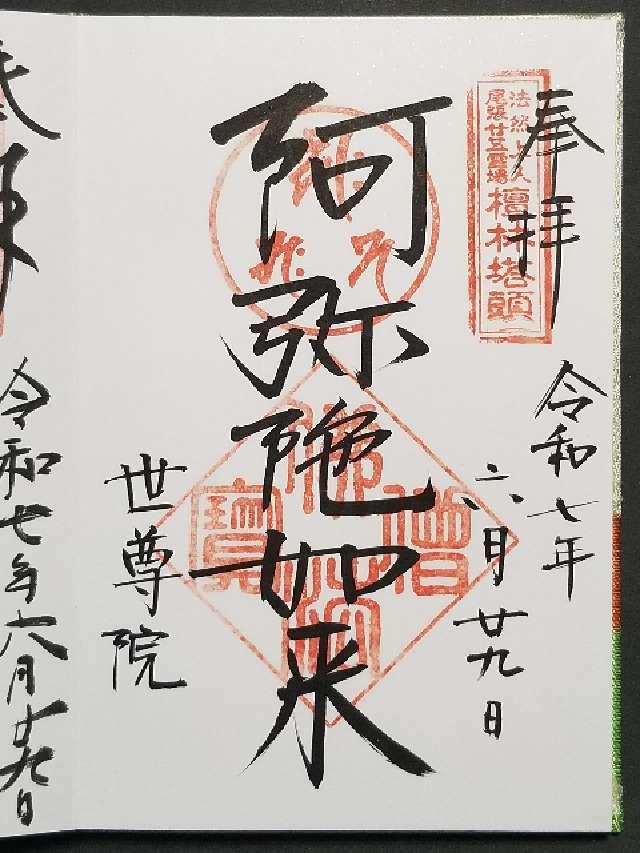 奉拝
法然上人
尾張廿五霊場
檀林塔頭
令和七年
六月廿九日
阿弥陀如来
佛法僧寶
世尊院
奉拝
令和七年六月廿九日